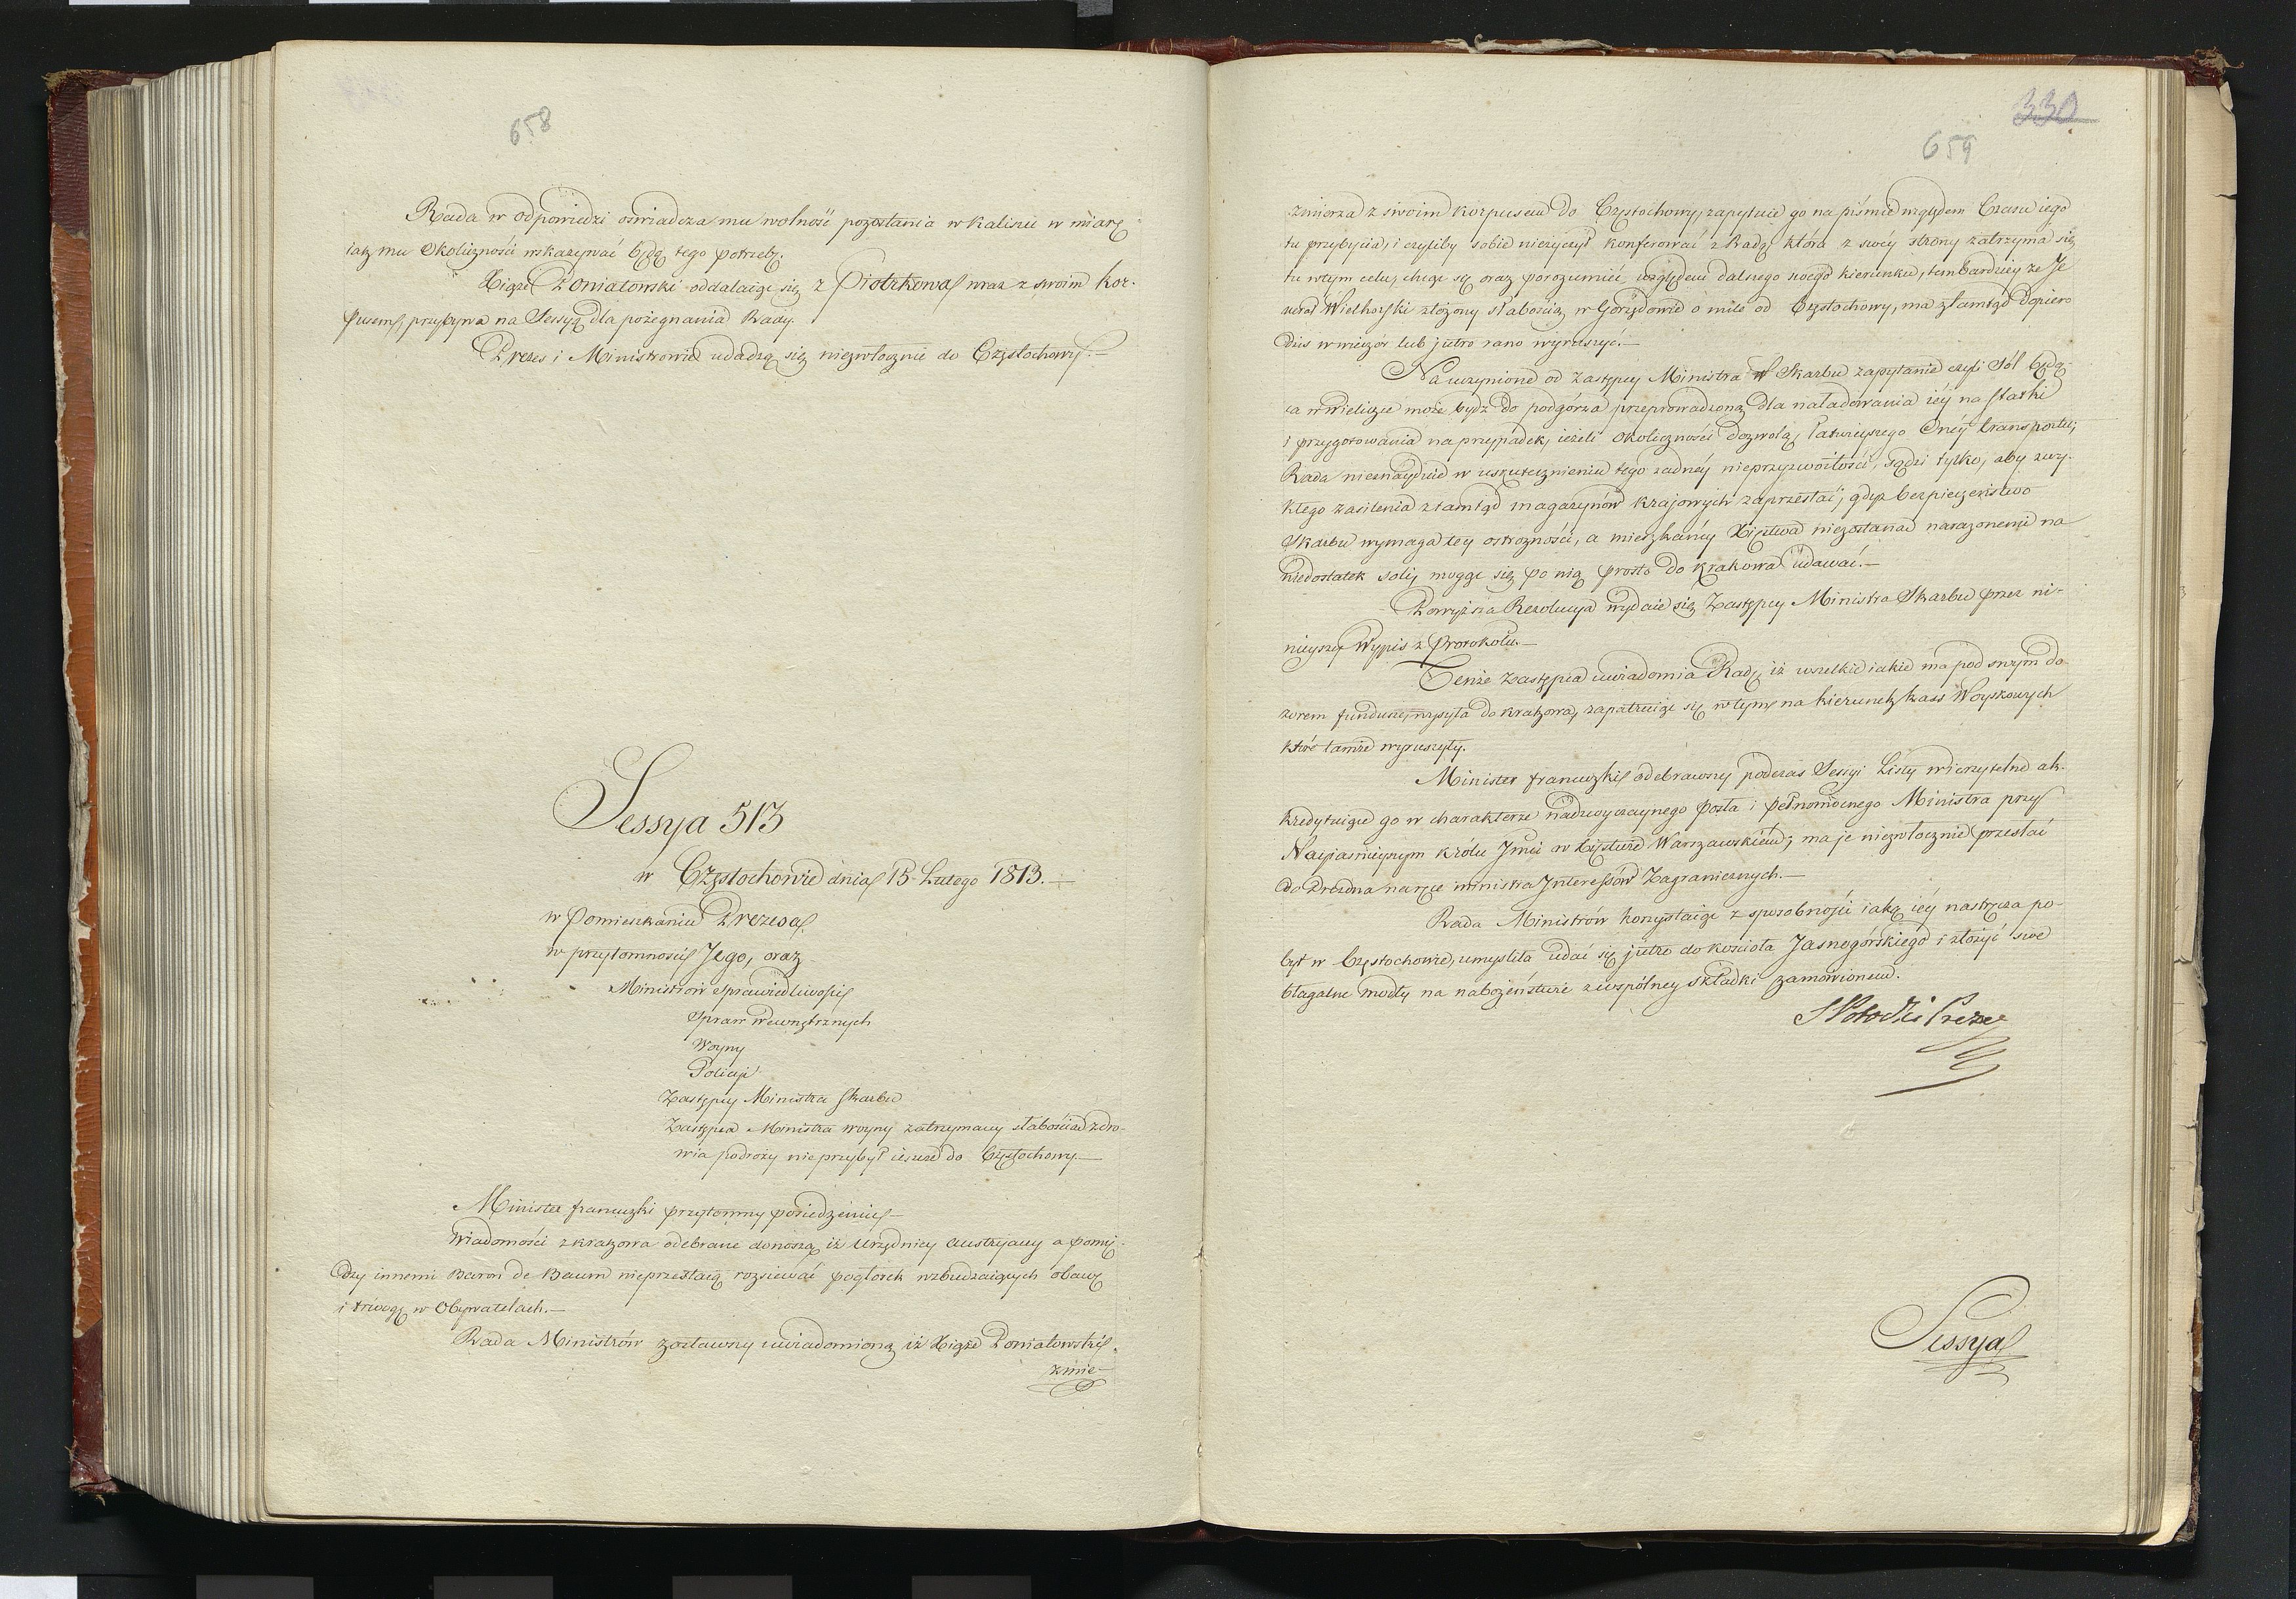 658
Rada w odpowiedzi oswiadcza mu wolność pozostania w Kaliszu w miarę
iak mu Okoliczności wskazywać będą tego potrzebę.
Xiąże Poniatowski oddalaiąc się z Piotrkowa wraz z swoim Kor-
pusem, przybywa na Sessyą dla pożegnania Rady.
Prezes i Ministrowie udadzą się niezwłocznie do Częstochowy.—
Sessya 513
w Częstochowie dnia 15 Lutego 1813.—
w Pomieszkaniu Prezesa
w przytomności Jego, oraz
Ministrów Sprawiedliwości
Spraw Wewnętrznych
Woyny
Policyi
Zastępcy Ministra Skarbu
Zastępca Ministra woyny zatrzymany słabością zdro-
wia podroży nie przybył ieszcze do Częstochowy.—
Minister francuzki przytomny posiedzeniu.—
Wiadomości z Krakowa odebrane donoszą iż Urzędnicy Austryaccy a pomię-
dzy innemi Baron de Baum nieprzestaią rozsiewać pogłosek wzbudzaiących obawę
i trwogę w Obywatelach.—
Rada Ministrów zostawszy uwiadomioną iż Xiąże Poniatowski
zmie-
330
659
zmierza z swoim korpusem do Częstochowy, zapytuie go na piśmie względem Czasu iego
tu przybycia, i czyliby sobie nieżyczył konferować z Radą, która z swéy strony zatrzyma się
tu w tym celu, chcąc się oraz porozumieć względem dalszego swego kierunku, tembardziey że Je
nerał Wielhorski złożony słabością w Gorzędowie o mile od Częstochowy, ma ztamtąd dopiero
dzis w wieczor lub jutro rano wyruszyć.—
Na uczynione od Zastępcy Ministra Skarbu zapytanie czyli Sól będą-
ca w wieliczce może bydz do podgórza przeprowadzoną dla naładowania iéy na statki
i przygotowania na przypadek, ieżeli okoliczności dozwolą łatwieyszego Onéy transportu,
Rada nieznayduie w uskutecznieniu tego żadnéy nieprzyzwoitości, sądzi tylko, aby zwy-
kłego zasilenia ztamtąd magazynów krajowych zaprzestać, gdyż bezpieczeństwo
Skarbu wymaga tey ostrożności, a mieszkańcy Xięstwa niezostaną narażonemi na
niedostatek soli, mogąc się po nią prosto do Krakowa udawać.—
Powyższa Rezolucya wydaie się Zastępcy Ministra Skarbu przez ni-
nieyszy Wypis z Protokołu.—
Tenże Zastępca uwiadomia Radę iż wszelkie iakie ma pod swym do-
zorem fundusze, wysyła do Krakowa, zapatruiąc się w tym na kierunek kass Woyskowych
które tamże wyruszyły.
Minister francuzki odebrawszy podczas Sessyi Listy wierzytelne ak-
kredytuiące go w charakterze nadzwyczaynego posła i pełnomocnego Ministra przy
Nayjasnieyszym Królu Jmci w Xięstwie Warszawskiém, ma je niezwłocznie przesłać
do Drezdna na ręce ministra Interessów Zagranicznych.—
Rada Ministrów korzystaiąc z sposobności iaką iéy nastręcza po-
byt w Częstochowie, umyśliła udać się jutro do kościoła Jasnogórskiego i złożyć swe
błagalne modły na nabożeństwie z wspólney składki zamówionem.
S Potocki Prezes
Sessya